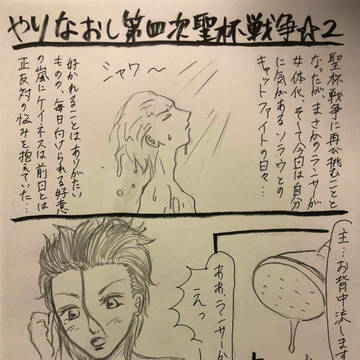 やりなおし第四次聖杯戦争☆2
聖杯戦争に再び挑むこと
なったが、まさかのランサーが
女体化、そして今回は自分
に気があるソラウとの
キャットファイトの日々…
シャワ〜
好かれることはありがたい
ものの、毎日向けられる好意
の嵐にケイネスは前回とは
正反対の悩みを抱えていた…
主…お背中流します
ああ、ランサーか
えっ